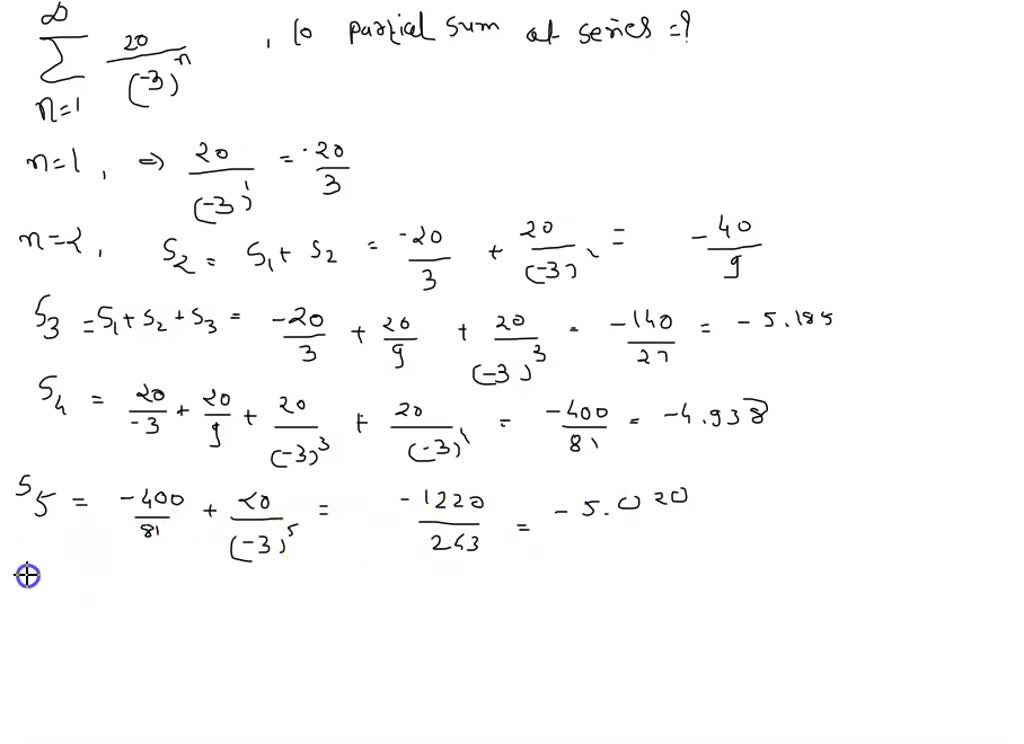 ∞
Σ 20/(-3)^n , 10 partial sum at series =?
n=1
n=1, ⇒ 20/(-3)^1 = -20/3
n=2, S2 = S1 + S2 = -20/3 + 20/(-3)^2 = -40/9
S3 = S1 + S2 + S3 = -20/3 + 20/9 + 20/(-3)^3 = -140/27 = -5.185
S4 = 20/-3 + 20/9 + 20/(-3)^3 + 20/(-3)^4 = -400/81 = -4.938
S5 = -400/81 + 20/(-3)^5 = -1220/243 = -5.020